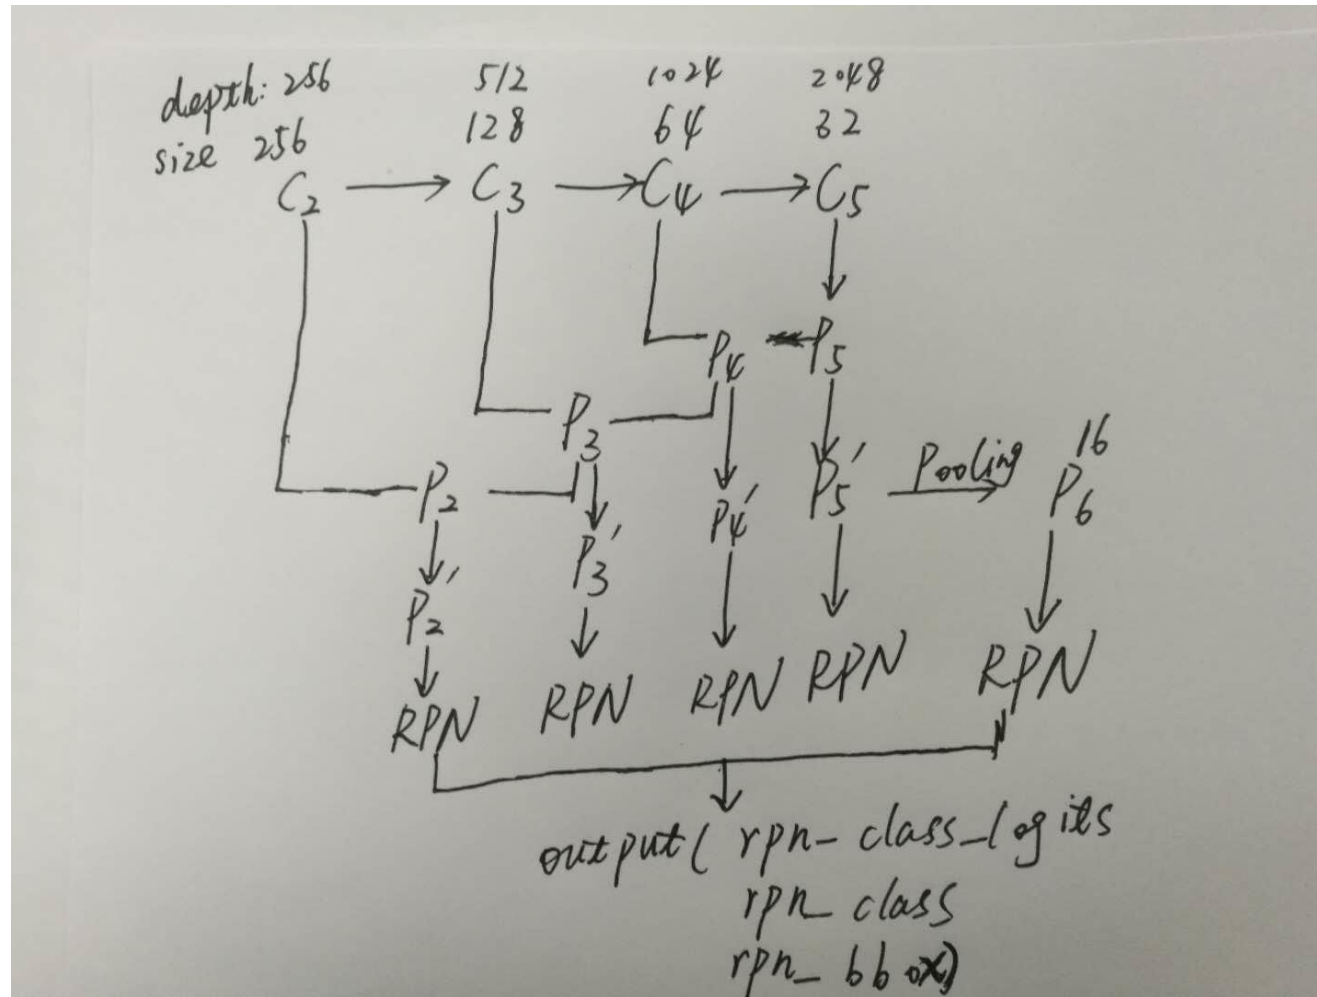 depth: 256 512 1024 2048
size 256 128 64 32
C2 C3 C4 C5
P4 P5
P3
P2 P3' P4' P5' Pooling P6 16
P2'
RPN RPN RPN RPN RPN
output( rpn_class_logits
rpn_class
rpn_bbox)